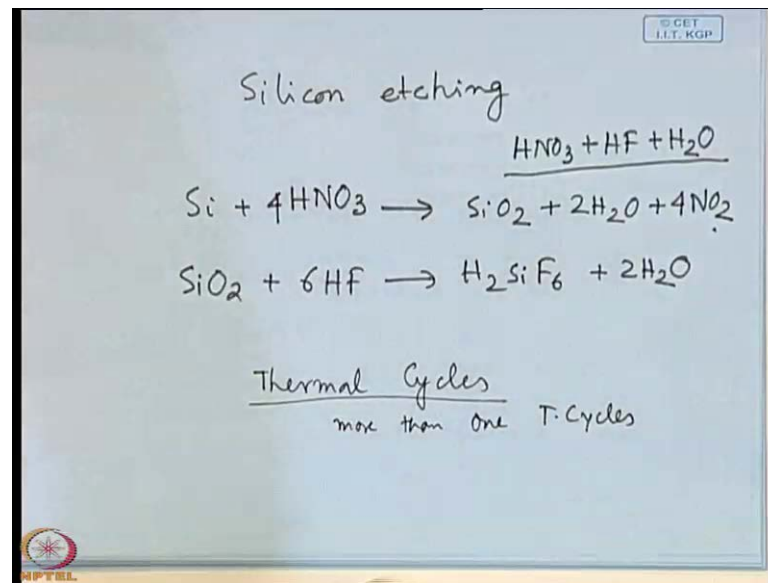 © CET
I.I.T. KGP
Silicon etching
HNO₃ + HF + H₂O
Si + 4HNO₃ → SiO₂ + 2H₂O + 4NO₂
SiO₂ + 6HF → H₂SiF₆ + 2H₂O
Thermal Cycles
more than one T. Cycles
NPTEL